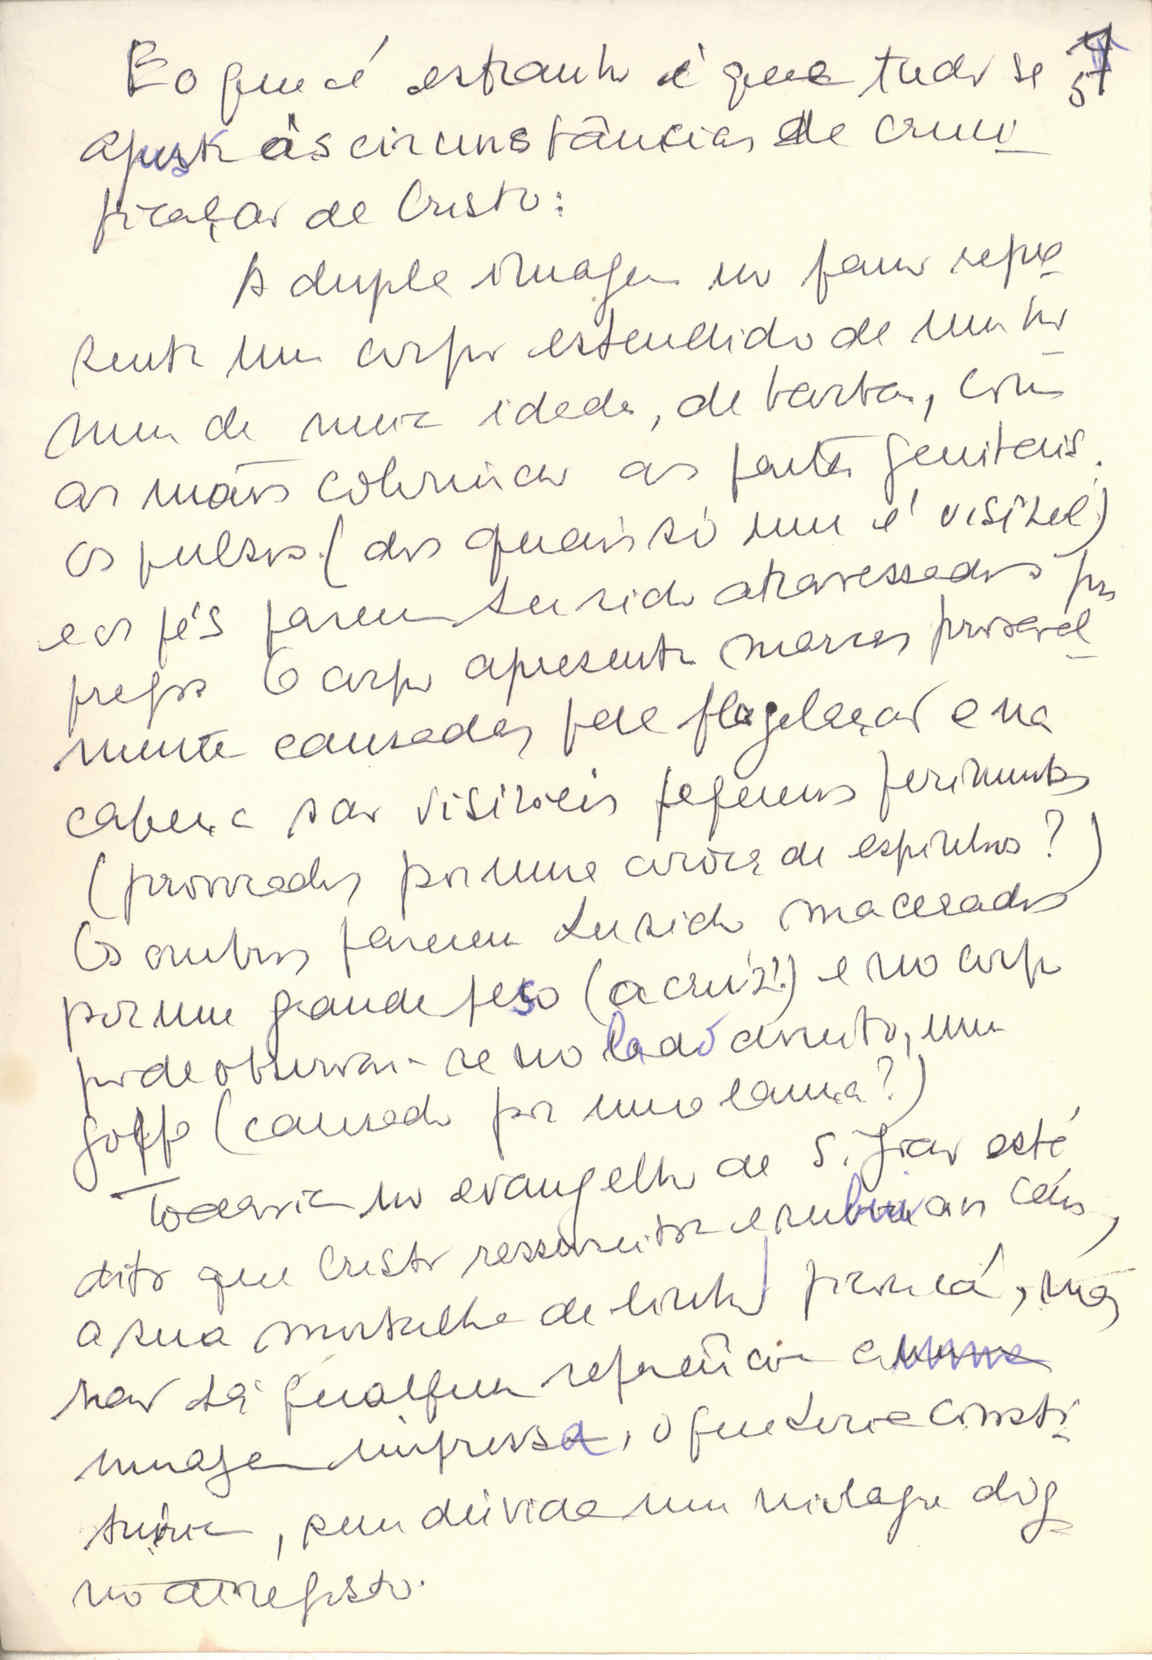 E o que é estranho é que tudo se 5
ajusta às circunstâncias de cruci
ficação de Cristo:
A dupla imagem no pano repre
senta um corpo estendido de um ho
mem de meia idade, de barba, com
as mãos cobrindo as partes genitais.
Os pulsos (dos quais só um é visível)
e os pés parecem ter sido atravessados por
pregos O corpo apresenta marcas provavel
mente causadas pela flagelação e na
cabeça são visíveis pequenos ferimentos
(provocados por uma coroa de espinhos?)
Os ombros parecem ter sido macerados
por um grande peso (a cruz?) e no corpo
pode observar-se no lado direito, um
golpe (causado por uma lança?)
Todavia no evangelho de S. João está
dito que Cristo ressuscitou e subiu aos céus,
a sua mortalha de linho ficou lá, mas
não há qualquer referência a
imagem impressa, o que teria consti
tuído, sem dúvida um milagre dig
no de registo.